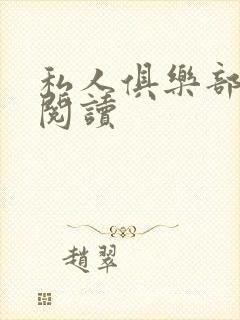 私人俱樂部
閱讀
趙翠